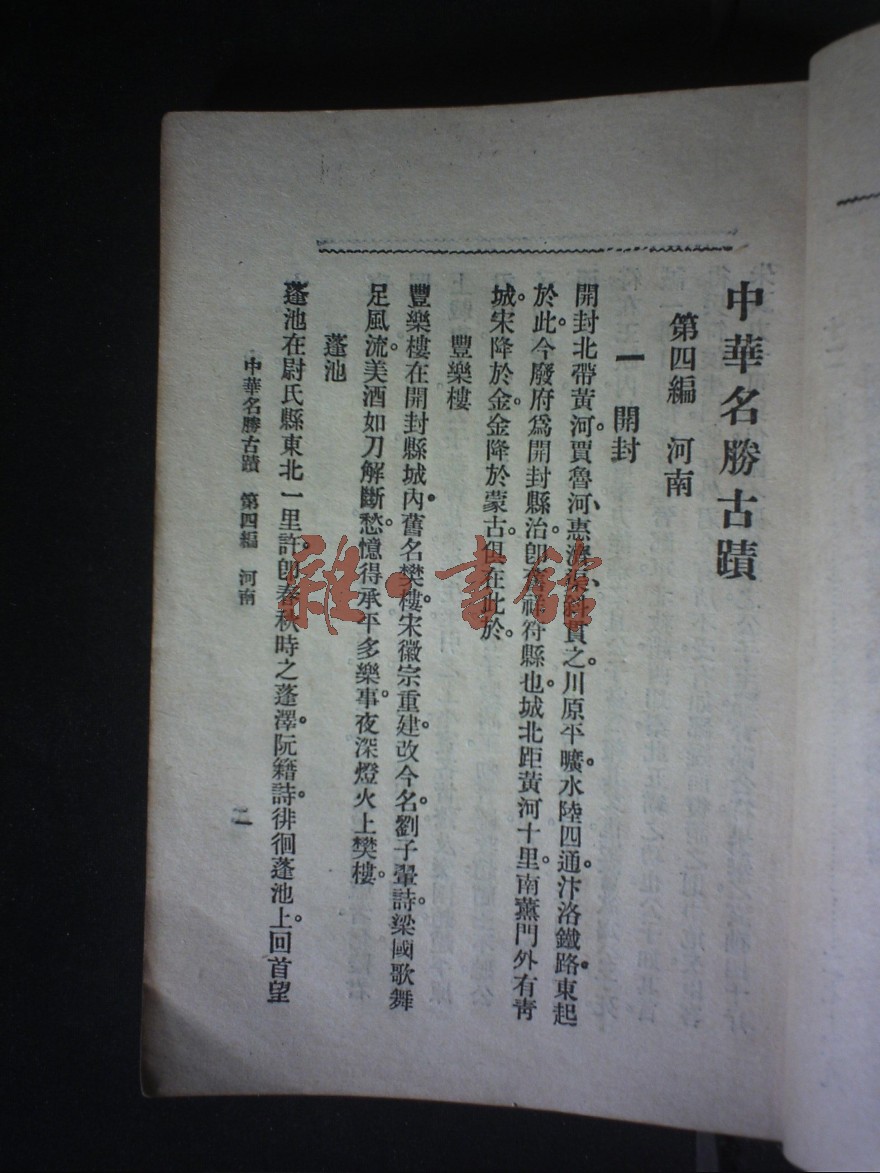 中華名勝古蹟
第四編　河南
一　開封
開封北帶黃河。賈魯河、惠濟渠、斜貫之。川原平曠。水陸四通。汴洛鐵路。東起
於此。今廢府爲開封縣治。卽舊祥符縣也。城北距黃河十里。南薰門外有靑
城。宋降於金。金降於蒙古。俱在此於。
豐樂樓
豐樂樓在開封縣城內。舊名樊樓。宋徽宗重建。改今名。劉子翬詩。梁國歌舞
足風流。美酒如刀解斷愁。憶得承平多樂事。夜深燈火上樊樓。
蓬池
蓬池在尉氏縣東北一里許。卽春秋時之蓬澤。阮籍詩。徘徊蓬池上。回首望
中華名勝古蹟　第四編　河南
雜·書館